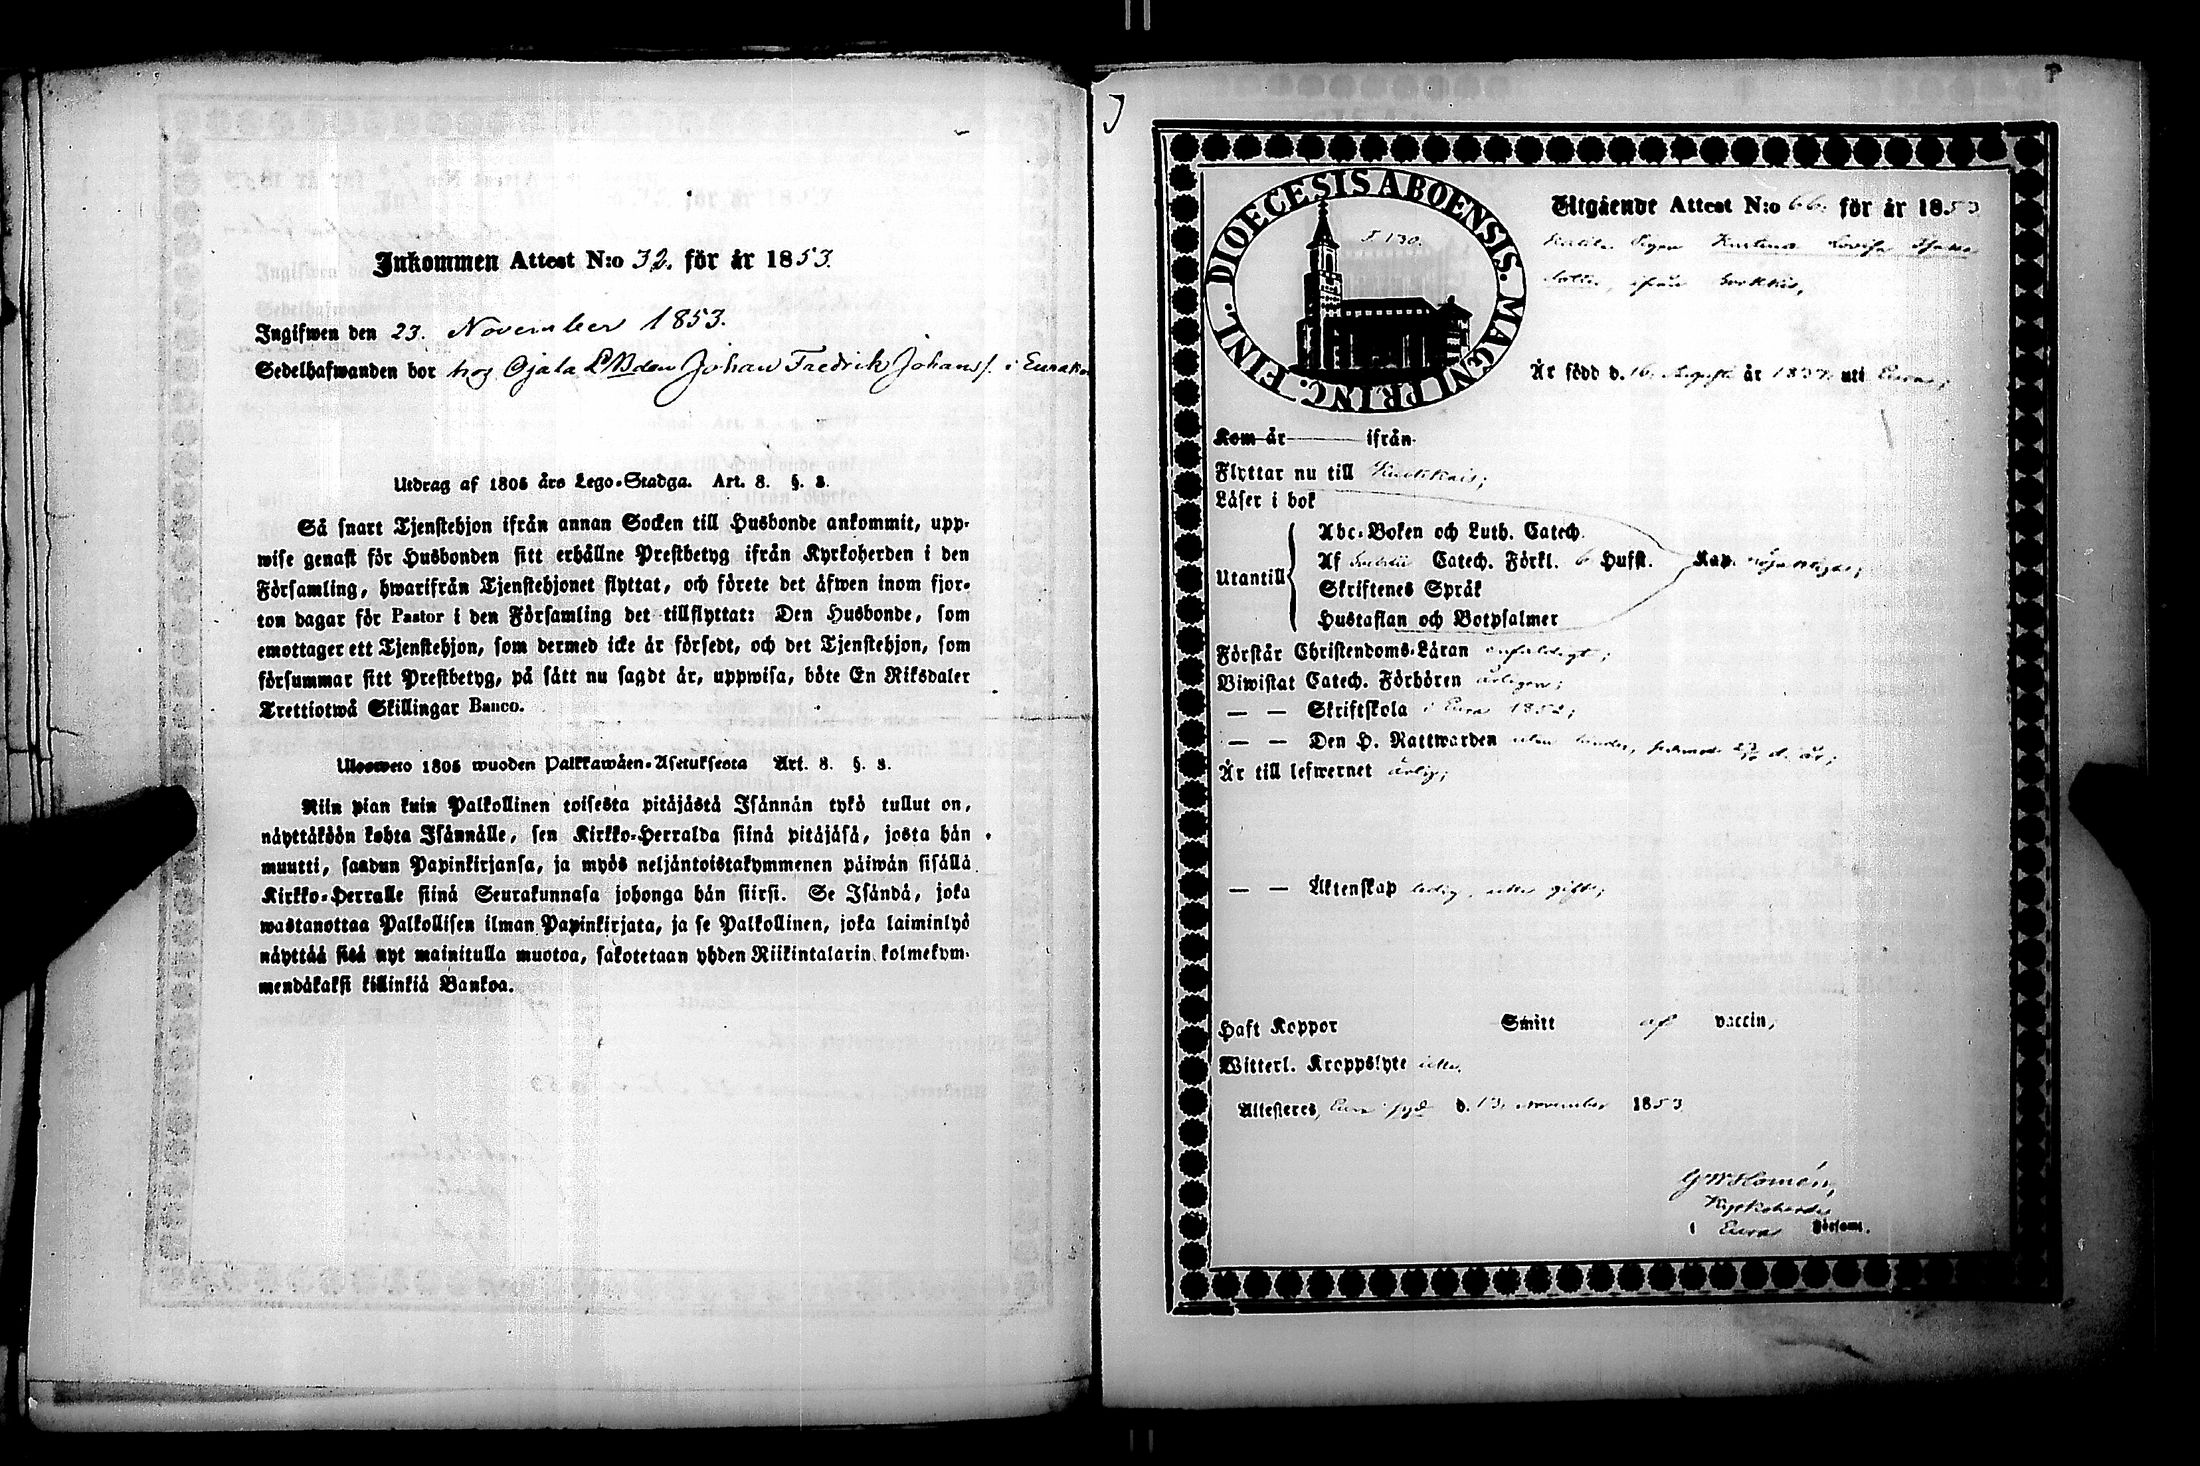 Inkommen Attest N:o 32. för år 1853.
Ingifwen den 23. November 1853.
Sedelhafwanden bor hog Ojala Johan Fredrik Johanss. i Eura
Utdrag af 1805 års Lego-Stadga. Art. 8. §. 8.
Så snart Tjenstehjon ifrån annan Socken till Husbonde ankommit, upp-
wise genast för Husbonden sitt erhållne Prestbetyg ifrån Kyrkoherden i den
Församling, hwarifrån Tjenstehjonet flyttat, och förete det äfwen inom fjor-
ton dagar för Pastor i den Församling det tillflyttat: Den Husbonde, som
emottager ett Tjenstehjon, som dermed icke är försedt, och det Tjenstehjon, som
försummar sitt Prestbetyg, på sätt nu sagdt är, uppwisa, böte En Riksdaler
Trettiotwå Skillingar Banco.
Ulosweto 1805 wuoden Palkkawäen-Asetuksesta Art. 8. §. 8.
Niin pian kuin Palkollinen toisesta pitäjästä Isännän tykö tullut on,
näyttäköön kohta Isännälle, sen Kirkko-Herralda siinä pitäjäsä, josta hän
muutti, saadun Papinkirjansa, ja myös neljäntoistakymmenen päiwän sisällä
Kirkko-Herralle siinä Seurakunnasa johonga hän siirsi. Se Isändä, joka
wastanottaa Palkollisen ilman Papinkirjata, ja se Palkollinen, joka laiminlyö
näyttää sitä nyt mainitulla muotoa, sakotetaan yhden Riikintalarin kolmekym-
mendäkaksi killinkiä Bankoa.
FINL. DIOECESIS ABOENSIS. MAGNI PRINC.
F. 130.
Utgående Attest N:o 66. för år 1853
Pigan Karolina Lovisa
dotter, ifrån
Är född d. 16 Augusti år 1837 uti Eura;
Kom år ifrån
Flyttar nu till
Läser i bok
Abc-Boken och Luth. Catech.
Utantill Af Catech. Förkl. 6 Hufst. Kap. nöjaktigt;
Skriftenes Språk
Hustaflan och Botpsalmer
Förstår Christendoms-Läran enfaldigt;
Biwistat Catech. Förhören årligen;
— — Skriftskola i Eura 1852;
— — Den H. Nattwarden utan hinder, d. år;
Är till lefwernet ärlig;
— — Äktenskap ledig,
Haft Koppor Smitt af vaccin,
Witterl. Kroppslyte
Attesteres, Eura d. 13 November 1853
G W Homén,
Kyrkoherde
i Eura Församl.